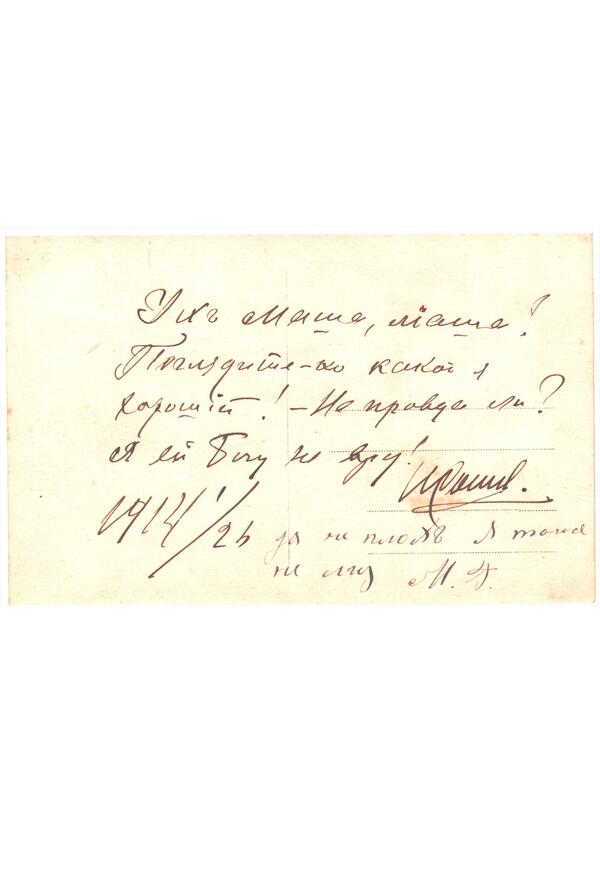 Ухъ Маша, Маша!
Поглядите-ко какой я
хорошій! - Не правда ли?
Я ей Богу не вру!
1914 1/26
да не плохъ Я тоже
не лгу М. Д.